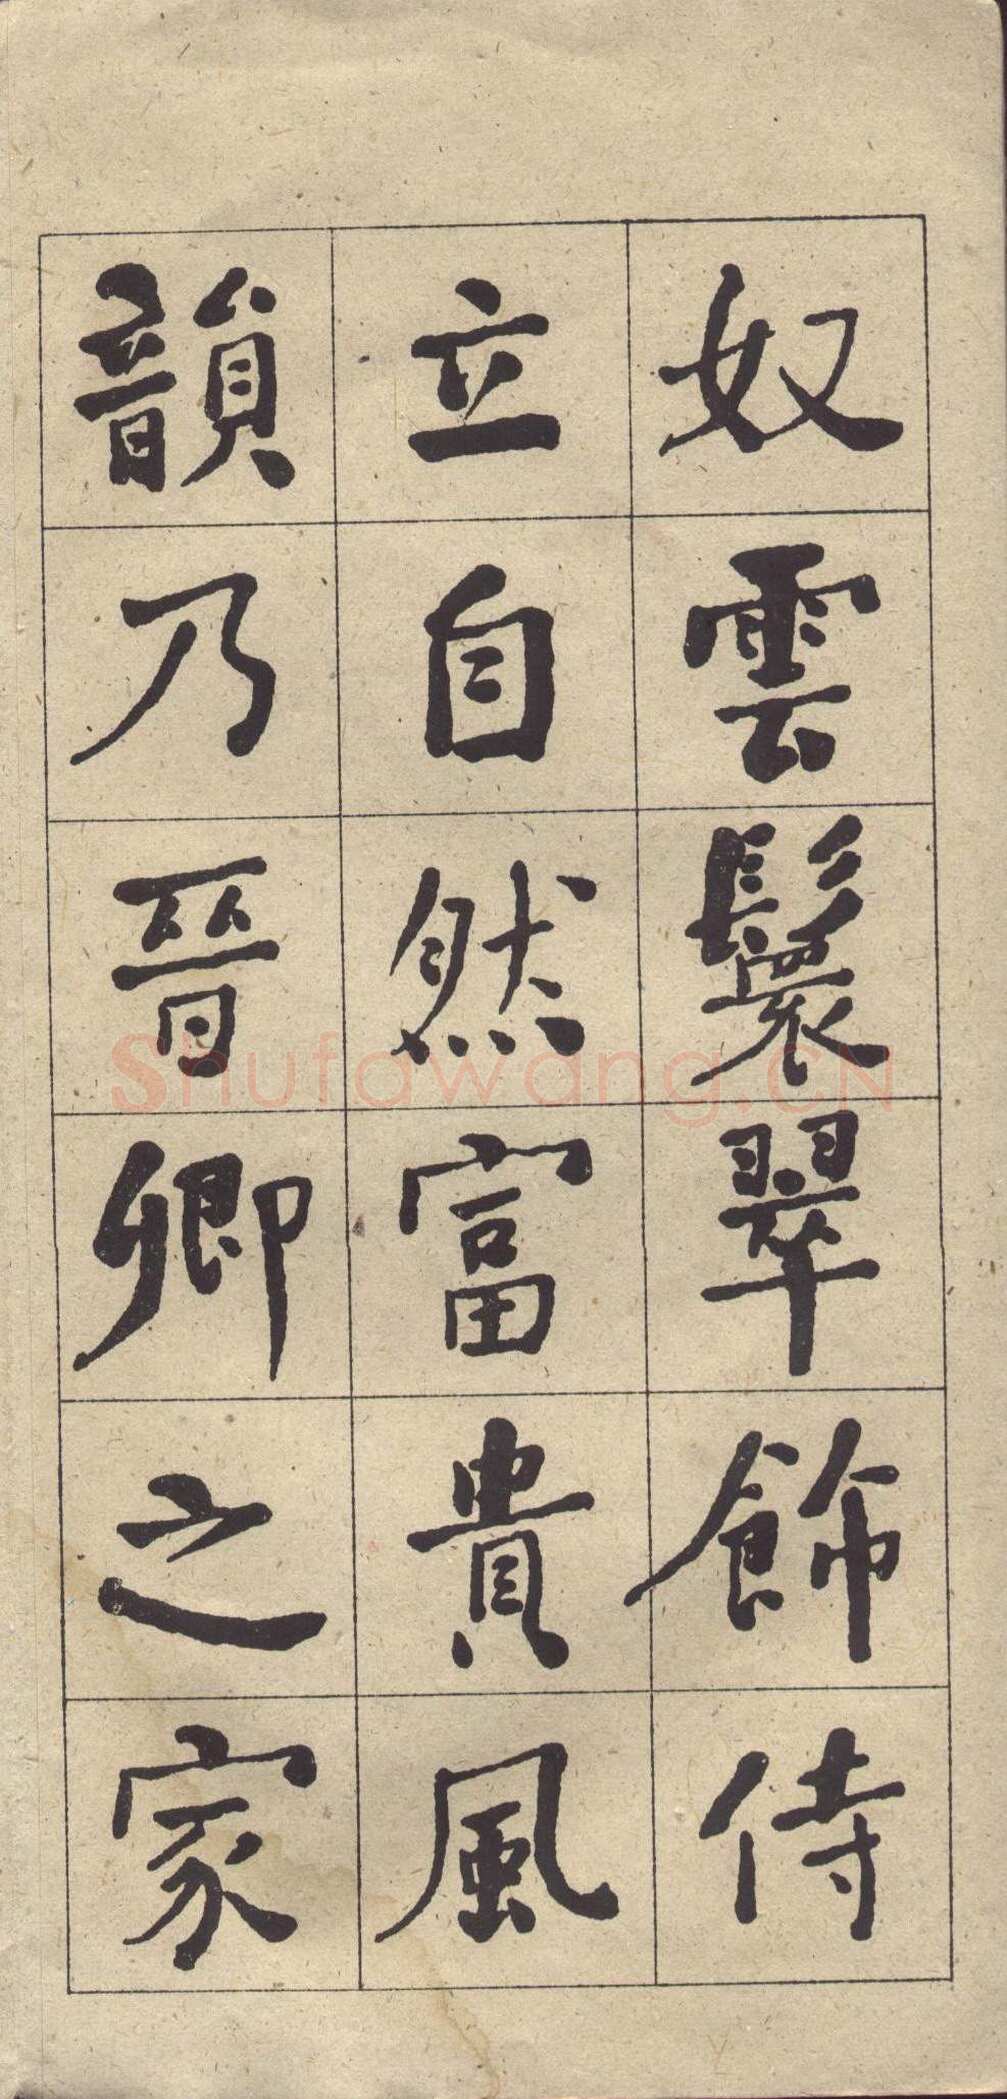 奴雲鬟翠飾侍
立自然富貴風
韻乃晉卿之家
Shufawang.CN